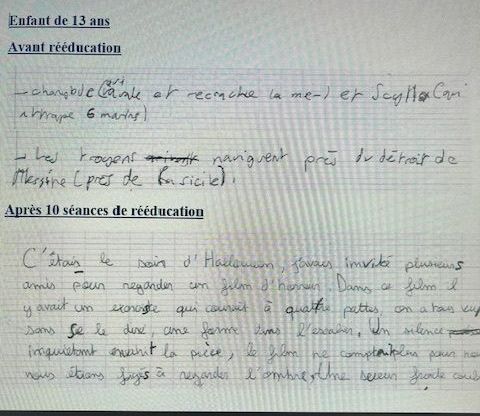 Enfant de 13 ans
Avant rééducation
et recrache la mer) et Scylla (qui
attrape 6 marins)
- Les troyens naviguent près du détroit de
Messine (près de la sicile).
Après 10 séances de rééducation
C'étais le soir d'Halloween, j'avais invité plusieurs
amis pour regarder un film d'horreur Dans ce film il
y avait un exorciste qui courait à quatre pattes, on a tous vu
sans se le dire, une forme dans l'escalier, Un silence
inquietant envahit la pièce, le film ne comptait plus pour nous
nous étions figés à regarder l'ombre. Une sueur froide